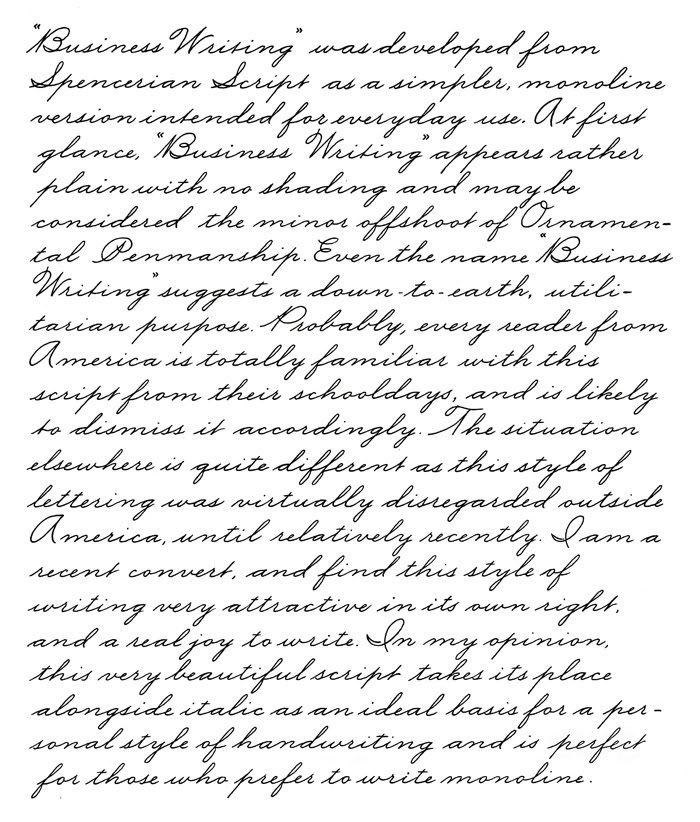 "Business Writing" was developed from
Spencerian Script as a simpler, monoline
version intended for everyday use. At first
glance, "Business Writing" appears rather
plain with no shading and may be
considered the minor offshoot of Ornamen-
tal Penmanship. Even the name "Business
Writing" suggests a down-to-earth, utili-
tarian purpose. Probably, every reader from
America is totally familiar with this
script from their schooldays, and is likely
to dismiss it accordingly. The situation
elsewhere is quite different as this style of
lettering was virtually disregarded outside
America, until relatively recently. I am a
recent convert, and find this style of
writing very attractive in its own right,
and a real joy to write. In my opinion,
this very beautiful script takes its place
alongside italic as an ideal basis for a per-
sonal style of handwriting and is perfect
for those who prefer to write monoline.